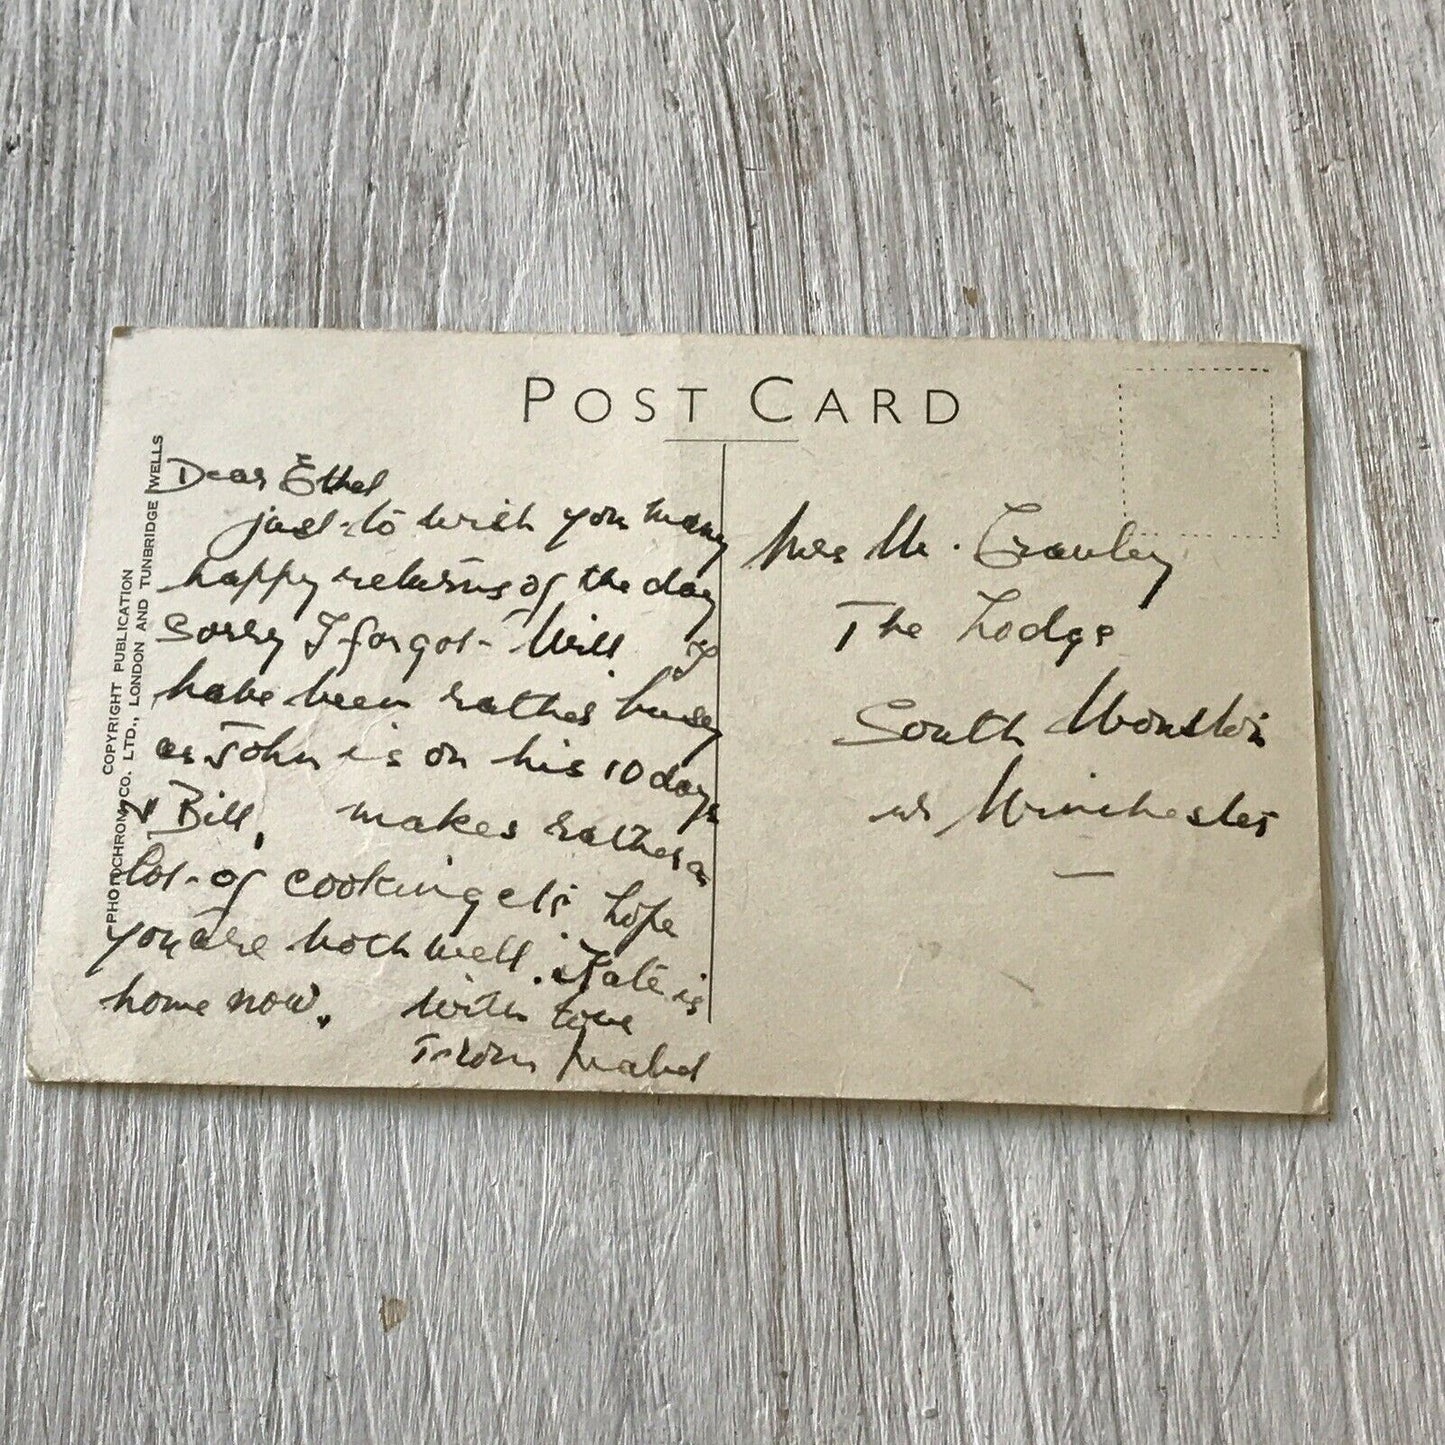 POST CARD
COPYRIGHT PUBLICATION
PHOTOCHROM CO. LTD., LONDON AND TUNBRIDGE WELLS
Dear Ethel
just to wish you many
happy returns of the day
Sorry I forgot Well I
have been rather busy
as John is on his 10 days
& Bill, makes rather a
lot of cooking etc hope
you are both well. Kate is
home now. With love
From Mabel
Mrs M. Crawley
The Lodge
South Wonston
nr Winchester